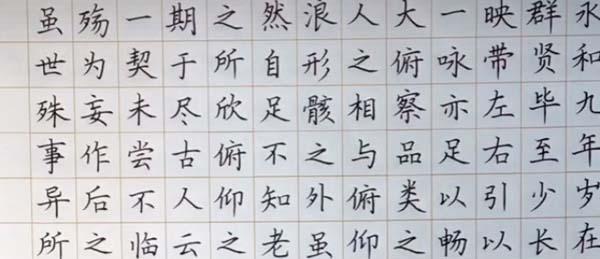 永和九年岁在
群贤毕至少长
映带左右引以
一咏亦足以畅
大俯察品类之
人之相与俯仰
浪形骸之外虽
然自足不知老
之所欣俯仰之
期于尽古人云
一契未尝不临
殇为妄作后之
虽世殊事异所